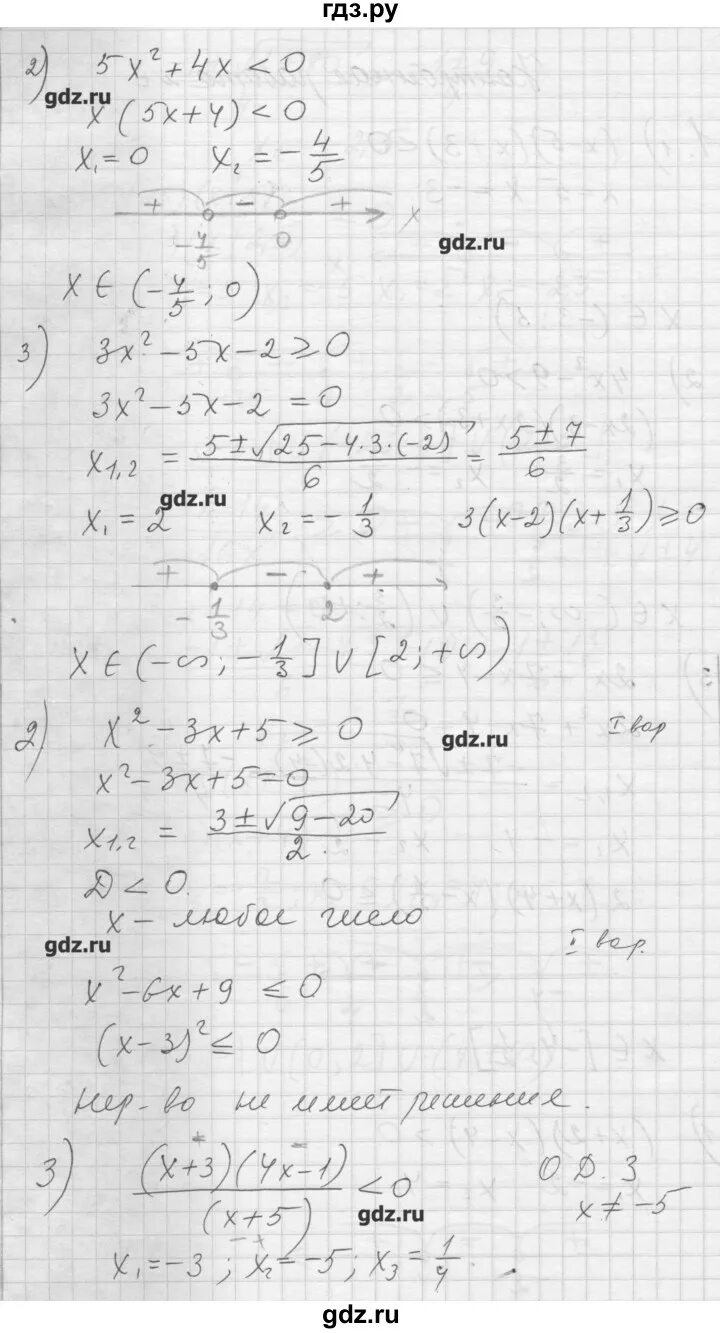 гдз.ру
2) 5x² + 4x < 0
gdz.ru
x(5x+4) < 0
x₁ = 0 x₂ = -4/5
+ - + x
-4/5 0
gdz.ru
x ∈ (-4/5; 0)
3) 3x² - 5x - 2 ⩾ 0
3x² - 5x - 2 = 0
x₁,₂ = (5 ± √(25 - 4·3·(-2)))/6 = (5 ± 7)/6
gdz.ru
x₁ = 2 x₂ = -1/3 3(x-2)(x+1/3) ⩾ 0
+ - +
-1/3 2
x ∈ (-∞; -1/3] ∪ [2; +∞)
2) x² - 3x + 5 ⩾ 0 I вар
gdz.ru
x² - 3x + 5 = 0
x₁,₂ = (3 ± √(9 - 20))/2
D < 0.
x - любое число
gdz.ru
I вар.
x² - 6x + 9 ≤ 0
(x-3)² ≤ 0
Нер-во не имеет решения.
3) (x+3)(4x-1)/(x+5) < 0 О.Д.З
x ≠ -5
gdz.ru
x₁ = -3; x₂ = -5; x₃ = 1/4.
gdz.ru